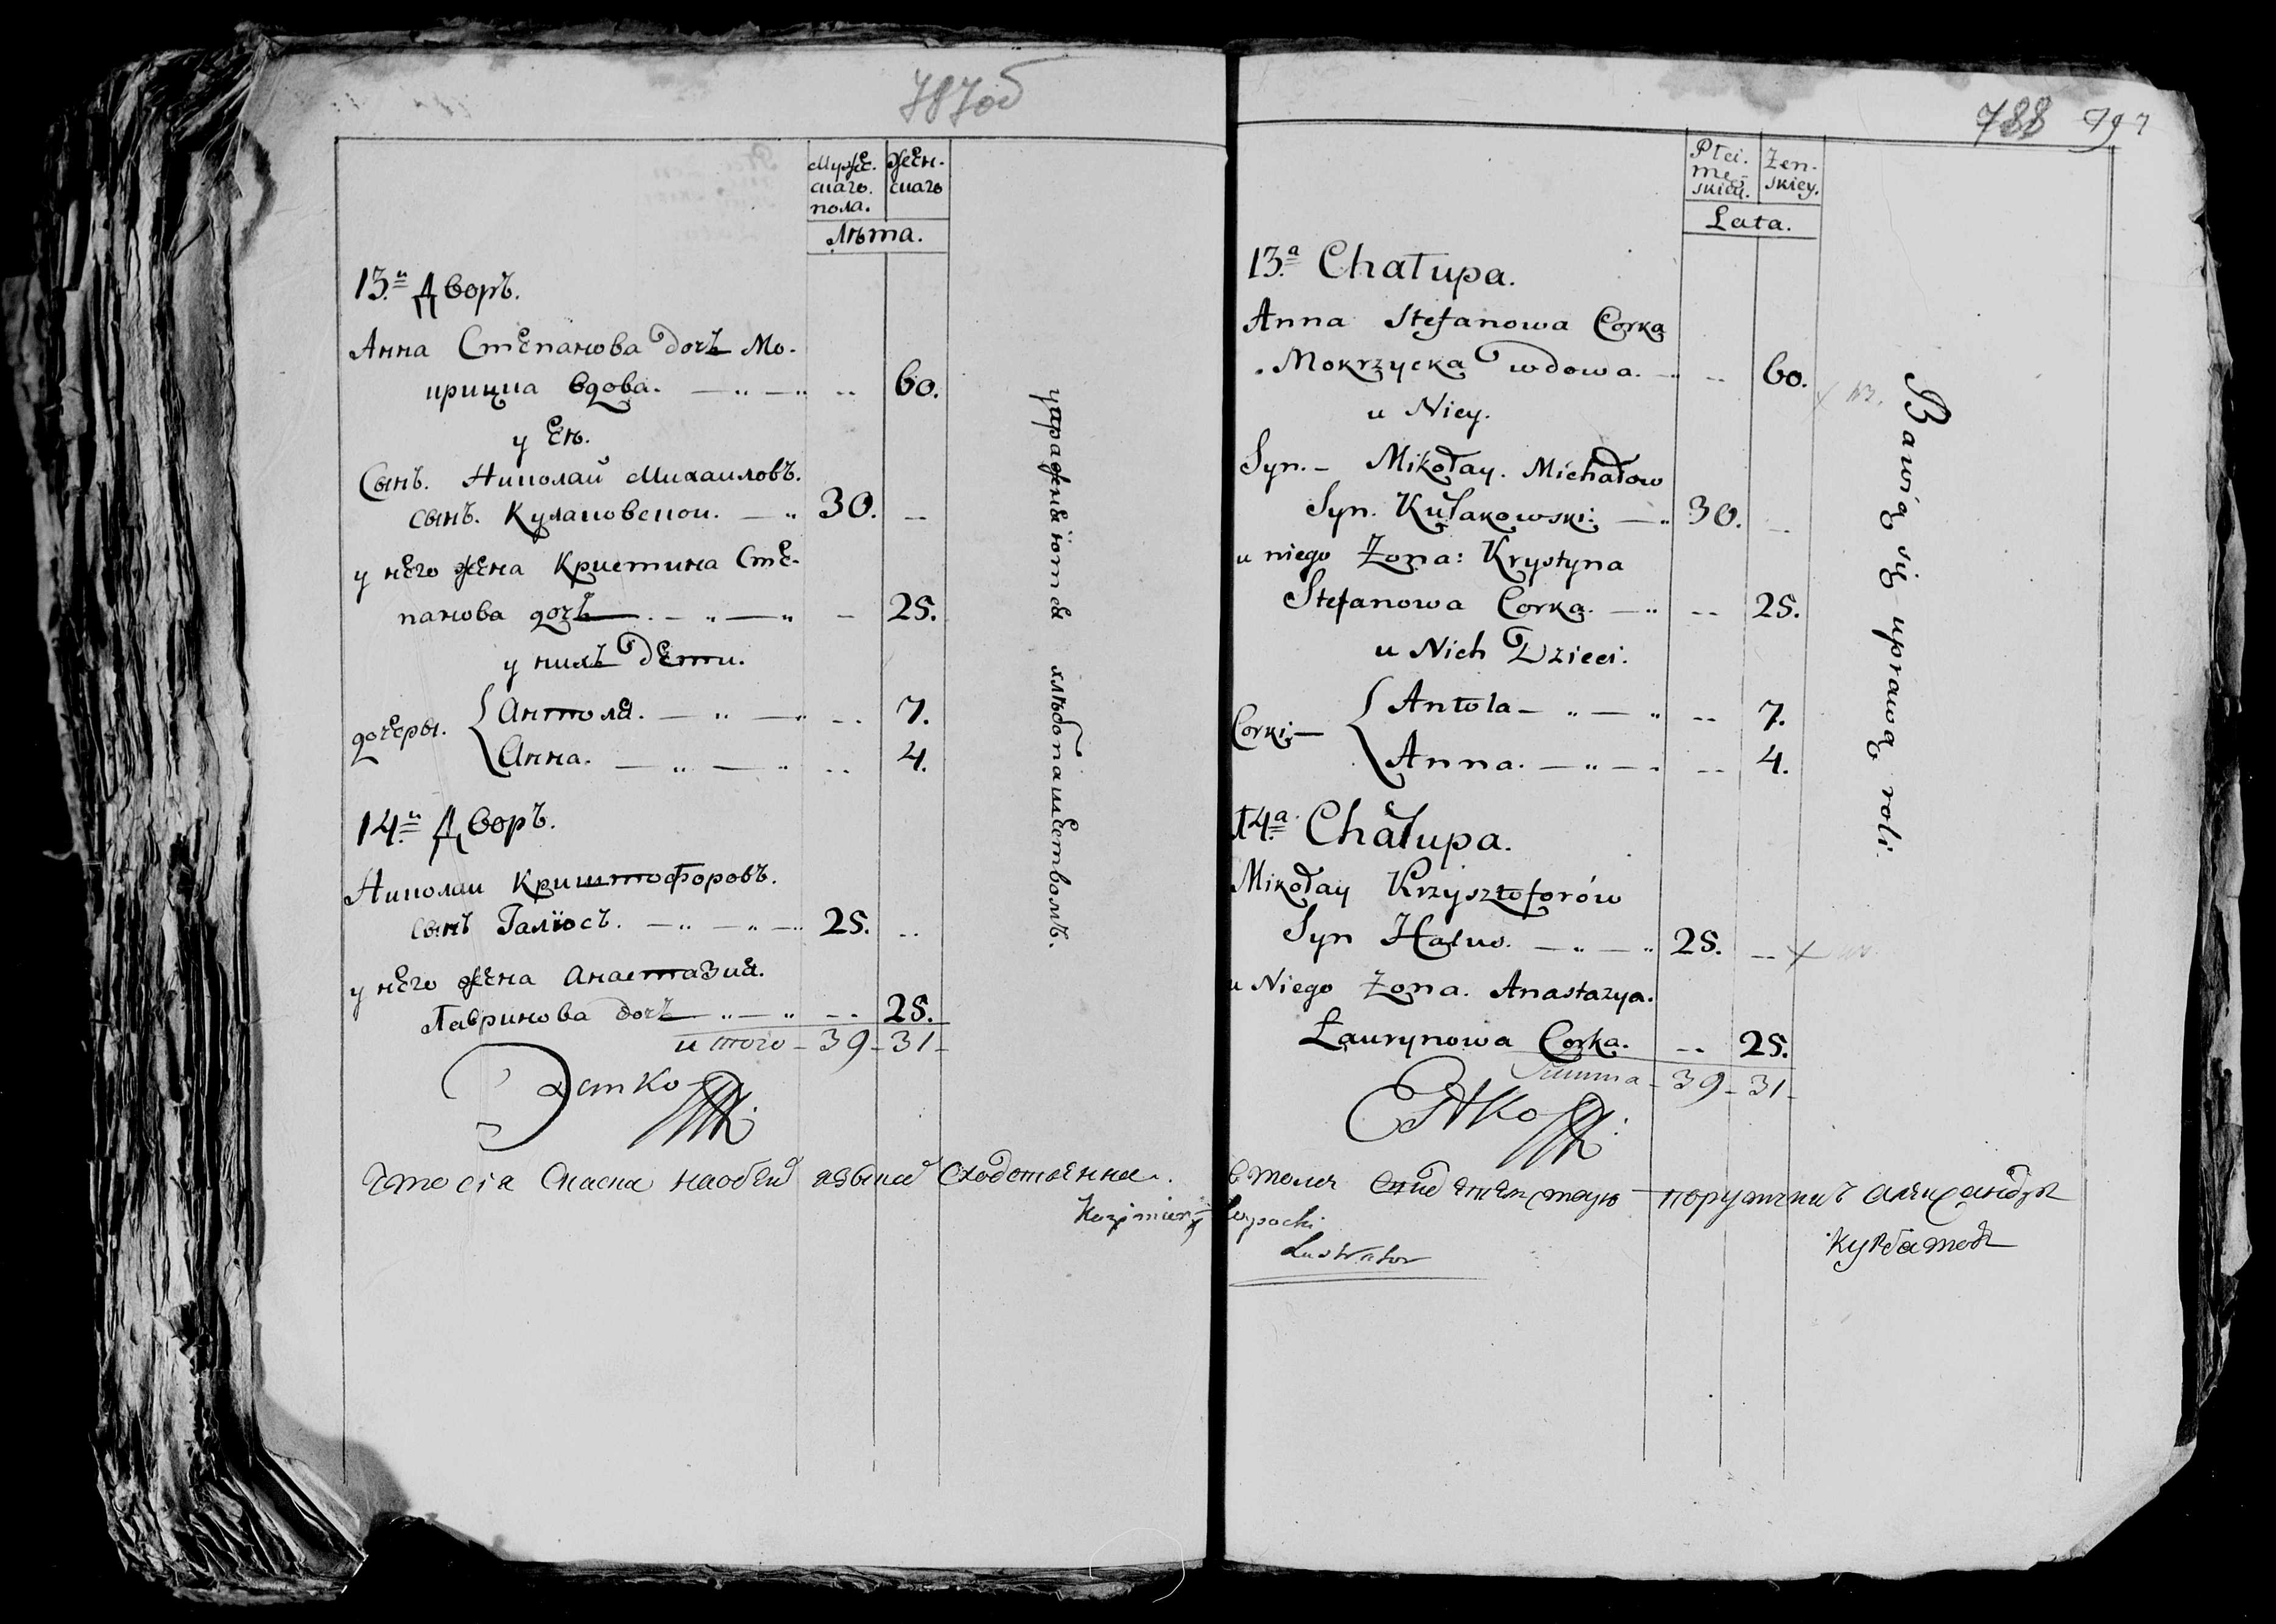 787об
Мужес-
каго
пола.
Женс-
скаго
Лѣта.
13.й Дворъ.
Анна Степанова дочъ Мо-
крицка вдова. 60.
у Ен.
Сынъ. Николай Михаиловъ.
сынъ. Кулаковскои. 30.
у него жена Кристина Сте-
панова дочъ 25.
у нихъ дети.
дочеры.
Антоля. 7.
Анна. 4.
14.й Дворъ.
Николаи Криштофоровъ.
сынъ Галюсъ. 25.
у него жена Анастазия.
Лавринова дочъ 25.
итого - 39 - 31 -
хлѣбопашествомъ.
что сія сказка
788 797
Płci.
męs-
skiey.
Żen-
skiey.
Lata.
13.a Chałupa.
Anna Stefanowa Corka
Mokrzycka wdowa. 60.
u Niey.
Syn. Mikołay. Michałow
Syn. Kułakowski. 30.
u niego Żona: Krystyna
Stefanowa Corka. 25.
u Nich Dzieci.
Corki
Antola 7.
Anna. 4.
14.a Chałupa.
Mikołay Krzysztoforów
Syn 25.
u Niego Żona. Anastazya.
Łaurynowa Corka. 25.
Summa - 39 - 31 -
Bawią się uprawą roli.
в томъ свидетелствую порутчикъ Александръ
Курбатовъ
Kazimierz
Lustrator